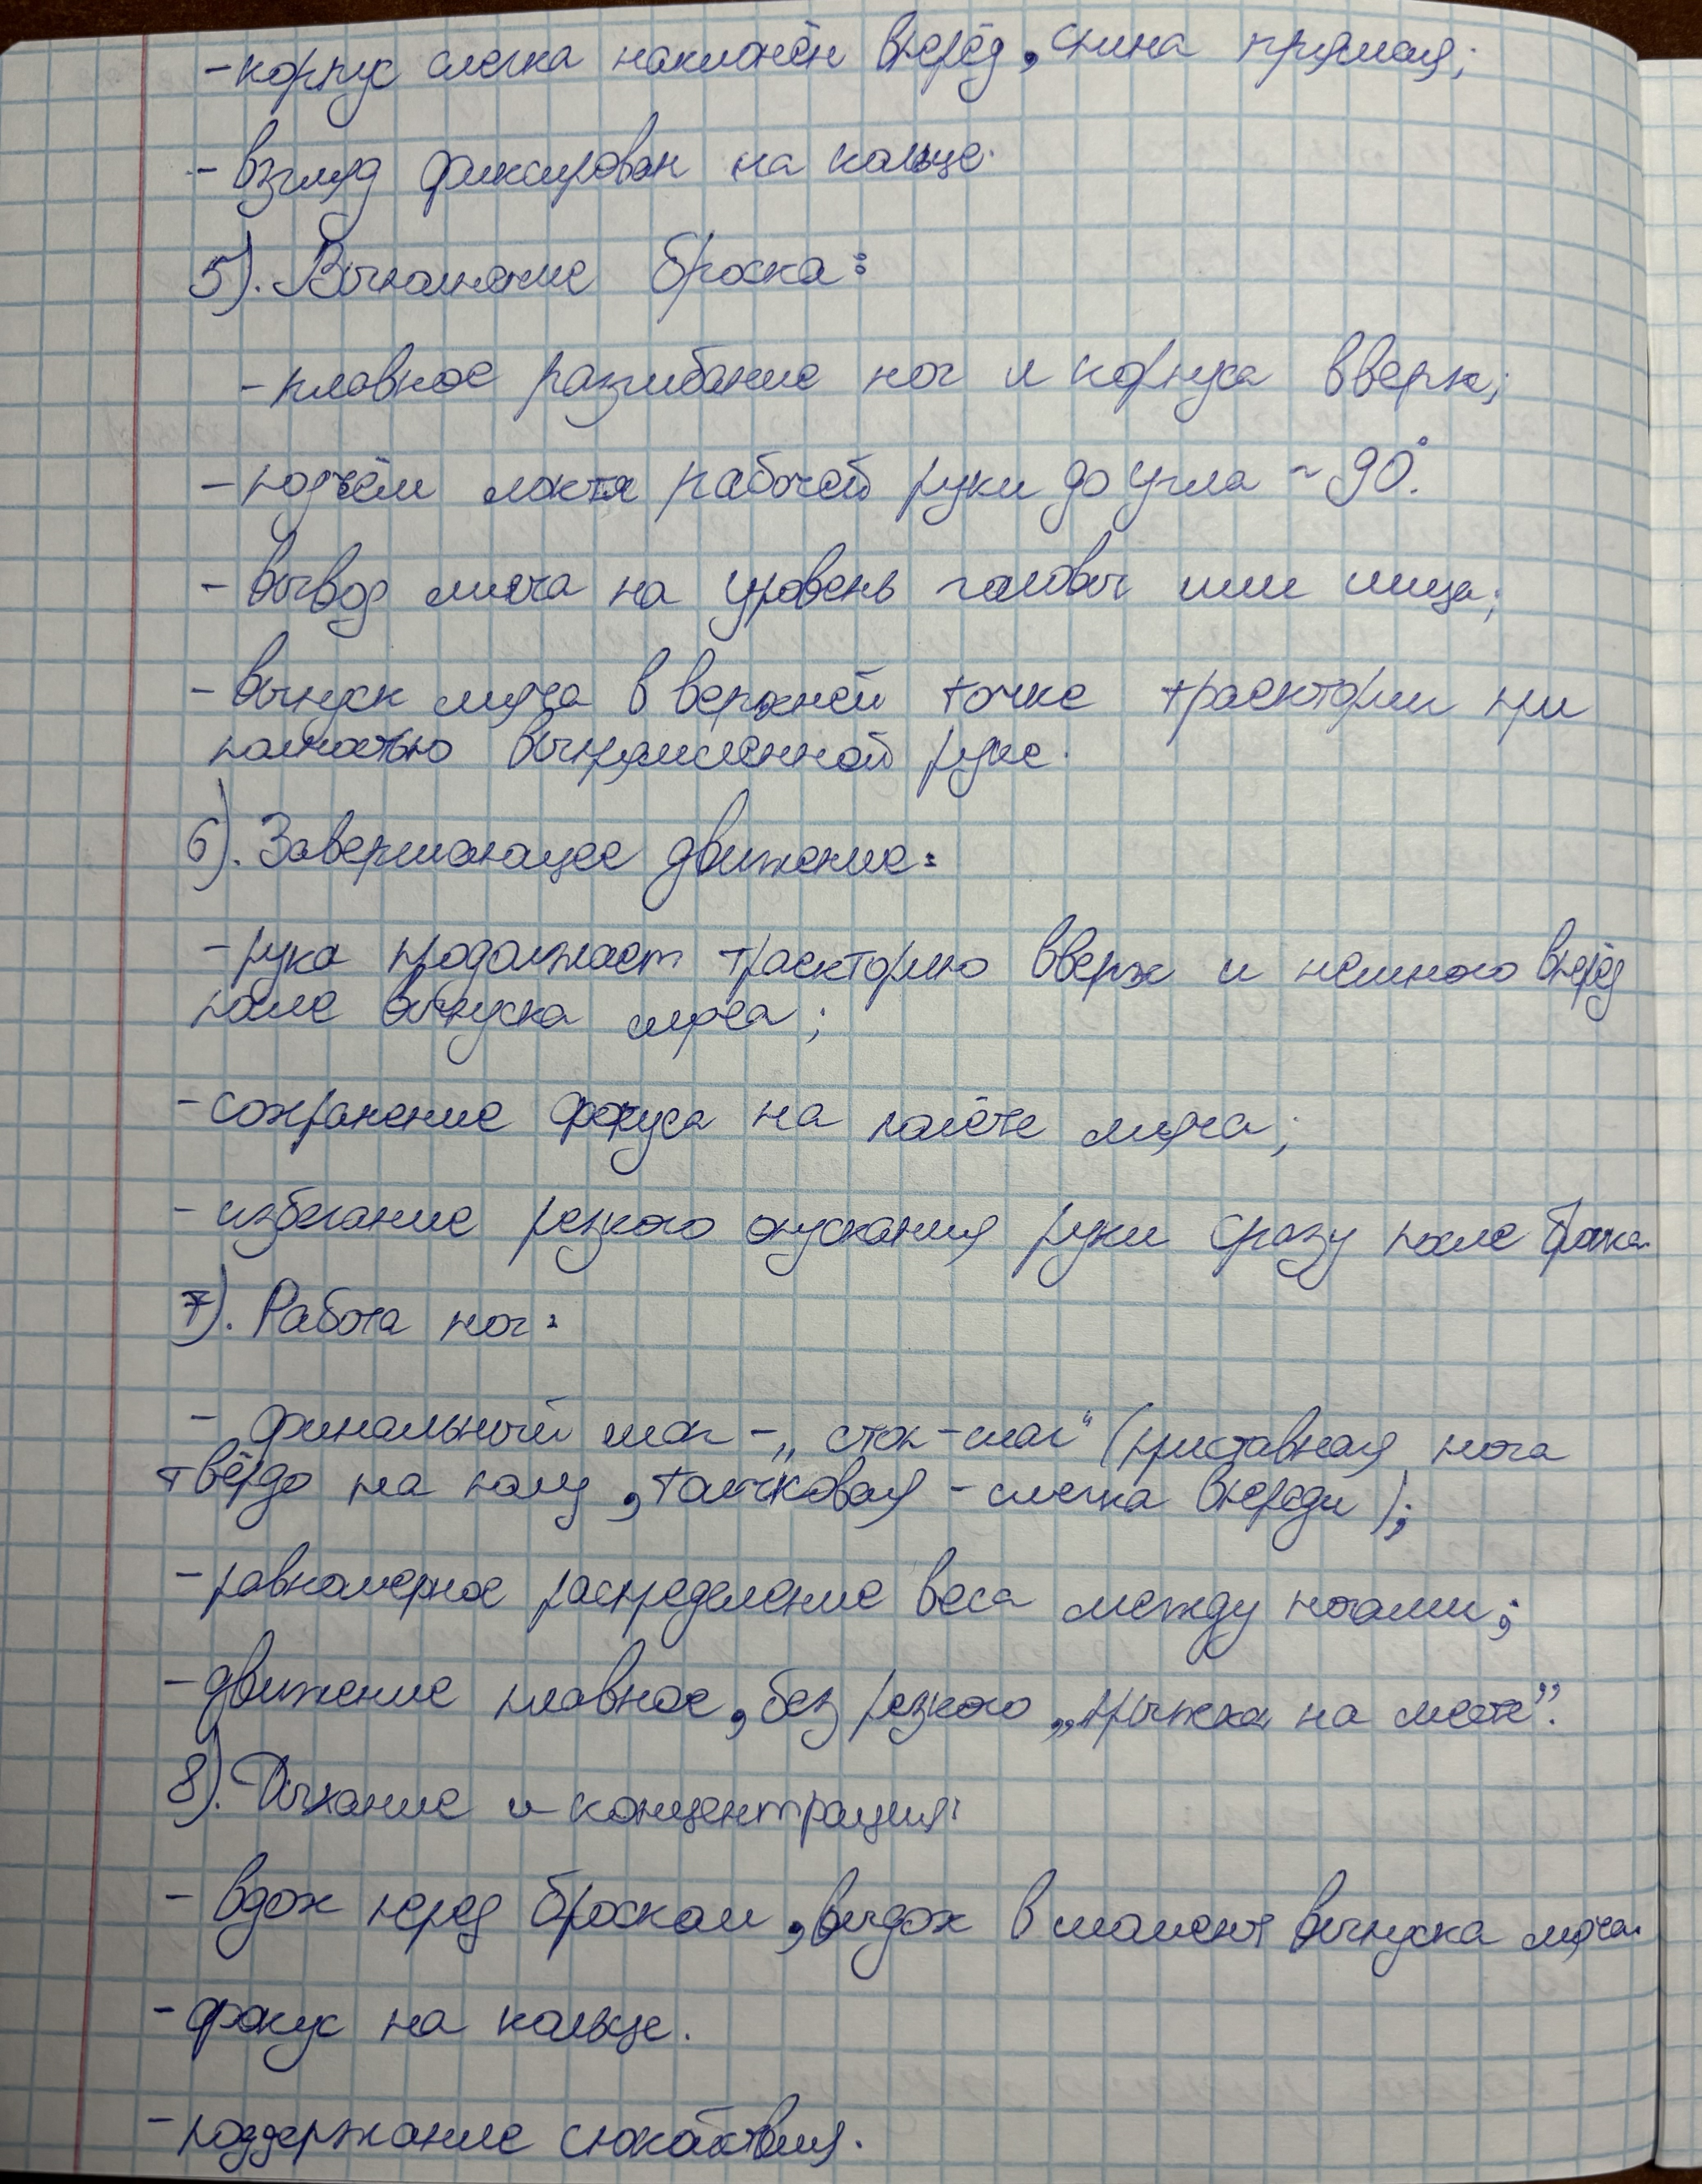 - корпус слегка наклонён вперёд, спина прямая;
- взгляд фиксирован на кольце.
5). Выполнение броска:
- плавное разгибание ног и корпуса вверх;
- подъём локтя рабочей руки до угла ~ 90°.
- вывод мяча на уровень головы или лица;
- выпуск мяча в верхней точке траектории при
полностью выпрямленной руке.
6). Завершающее движение:
- рука продолжает траекторию вверх и немного вперёд
после выпуска мяча;
- сохранение фокуса на полёте мяча;
- избегание резкого опускания руки сразу после броска.
7). Работа ног:
- финальный шаг - „стоп-шаг“ (приставная нога
твёрдо на полу, толчковая - слегка впереди);
- равномерное распределение веса между ногами;
- движение плавное, без резкого „прыжка на месте”.
8). Дыхание и концентрация:
- вдох перед броском, выдох в момент выпуска мяча.
- фокус на кольце.
- поддержание спокойствия.